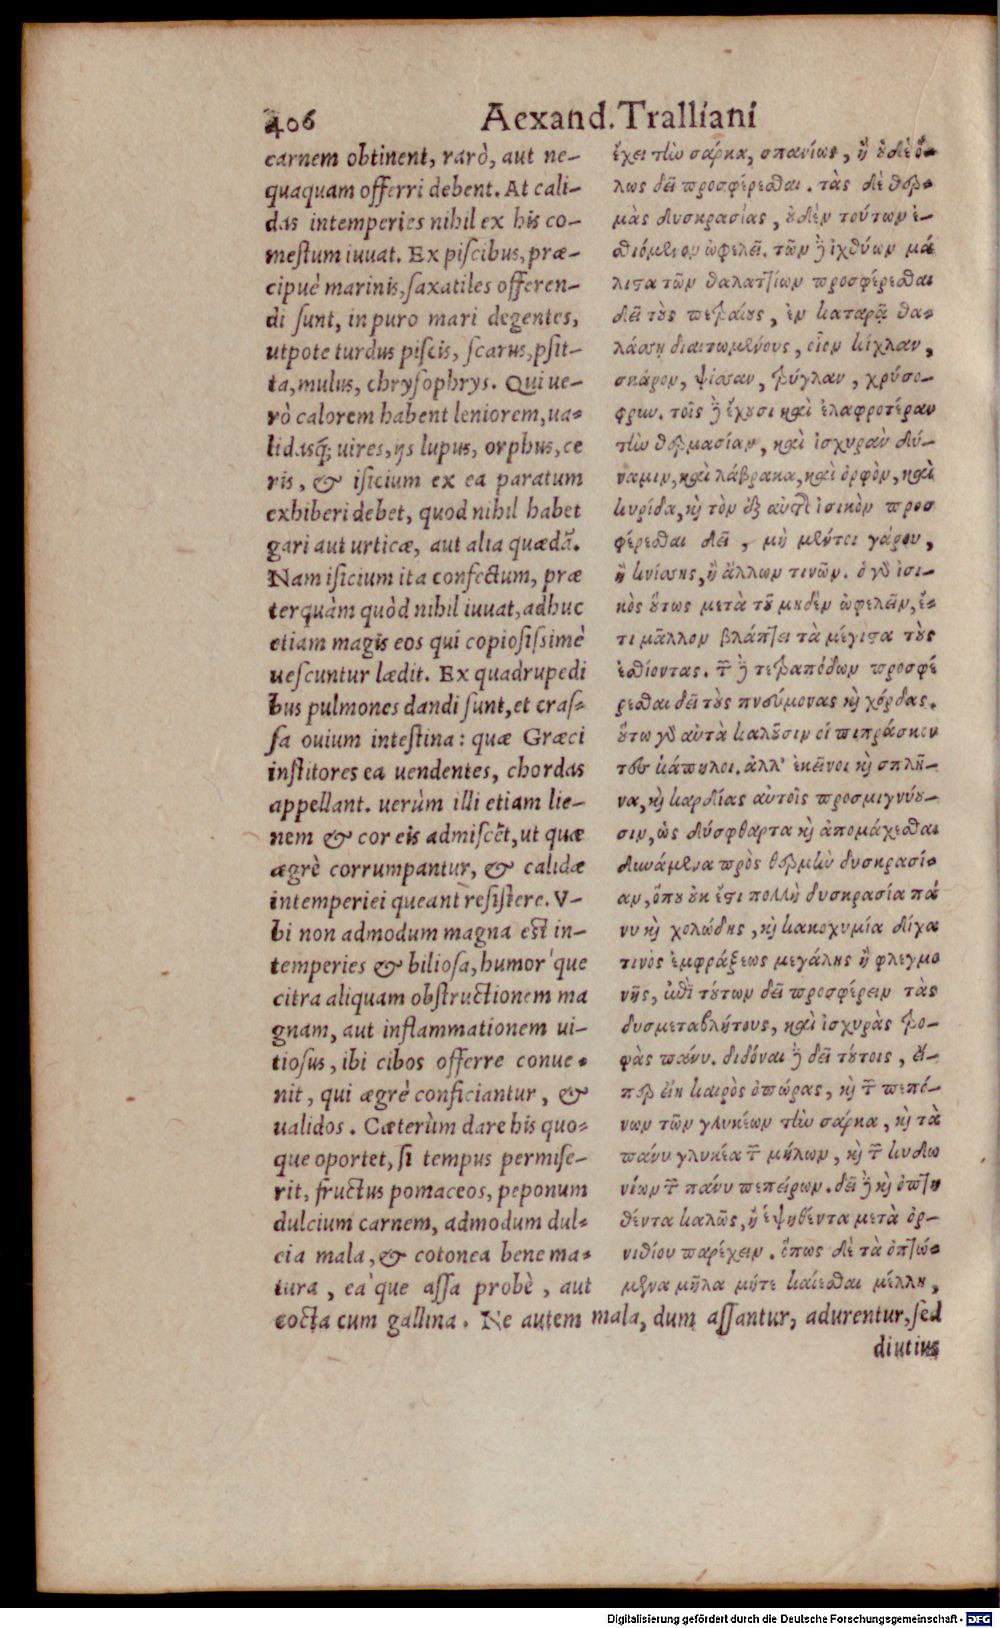 406
Aexand. Tralliani
carnem obtinent, rarò, aut ne-
quaquam offerri debent. At cali-
das intemperies nihil ex his co-
mestum iuuat. Ex piscibus, præ-
cipuè marinis, saxatiles offeren-
di sunt, in puro mari degentes,
utpote turdus piscis, scarus, psit-
ta, mulus, chrysophrys. Qui ue-
rò calorem habent leniorem, ua-
lidasq́; uires, ijs lupus, orphus, ce
ris, & isicium ex ea paratum
exhiberi debet, quod nihil habet
gari aut urticæ, aut alia quædā.
Nam isicium ita confectum, præ
terquàm quòd nihil iuuat, adhuc
etiam magis eos qui copiosissimè
uescuntur lædit. Ex quadrupedi
bus pulmones dandi sunt, et cras-
sa ouium intestina: quæ Græci
institores ea uendentes, chordas
appellant. uerùm illi etiam lie-
nem & cor eis admiscēt, ut quæ
ægrè corrumpantur, & calidæ
intemperiei queant resistere. V-
bi non admodum magna est in-
temperies & biliosa, humor'que
citra aliquam obstructionem ma
gnam, aut inflammationem ui-
tiosus, ibi cibos offerre conue-
nit, qui ægrè conficiantur, &
ualidos. Cæterùm dare his quo-
que oportet, si tempus permise-
rit, fructus pomaceos, peponum
dulcium carnem, admodum dul-
cia mala, & cotonea bene ma-
tura, ea'que assa probè, aut
cocta cum gallina. Ne autem mala, dum assantur, adurentur, sed
diutius
ἔχει τὴν σάρκα, σπανίως, ἢ οὐδὲ ὅ-
λως δεῖ προσφέρεσθαι. τὰς δὲ θερ-
μὰς δυσκρασίας, οὐδὲν τούτων ἐ-
σθιόμενον ὠφελεῖ. τῶν δὲ ἰχθύων μά
λιστα τῶν θαλαττίων προσφέρεσθαι
δεῖ τοὺς πετραίους, ἐν καταρᾷ θα-
λάσσῃ διαιτωμένους, οἷον κίχλαν,
σκάρον, ψίσσαν, τρύγλαν, χρύσο-
φρυν. τοῖς δὲ ἔχουσι καὶ ἐλαφροτέραν
τὴν θερμασίαν, καὶ ἰσχυρὰν δύ-
ναμιν, καὶ λάβρακα, καὶ ὀρφὸν, καὶ
κυρίδα, καὶ τὸν ἐξ αὐτῆς ἰσικὸν προσ
φέρεσθαι δεῖ, μὴ μέντοι γάρου,
ἢ κνίσσης, ἢ ἄλλων τινῶν. ὁ γὰρ ἰσι-
κὸς οὕτως μετὰ τοῦ μηδὲν ὠφελεῖν, ἔ-
τι μᾶλλον βλάπτει τὰ μέγιστα τοὺς
ἐσθίοντας. τῶν δὲ τετραπόδων προσφέ
ρεσθαι δεῖ τοὺς πνεύμονας καὶ χόρδας.
οὕτω γὰρ αὐτὰ καλοῦσιν οἱ πιπράσκον
τες κάπηλοι. ἀλλ' ἐκεῖνοι καὶ σπλῆ-
να, καὶ καρδίας αὐτοῖς προσμιγνύου-
σιν, ὡς δύσφθαρτα καὶ ἀπομάχεσθαι
δυνάμενα πρὸς θερμὴν δυσκρασί-
αν, ὅπου οὐκ ἔστι πολλὴ δυσκρασία πά
νυ καὶ χολώδης, καὶ κακοχυμία δίχα
τινὸς ἐμφράξεως μεγάλης ἢ φλεγμο
νῆς, ἐπὶ τούτων δεῖ προσφέρειν τὰς
δυσμεταβλήτους, καὶ ἰσχυρὰς τρο-
φὰς πάνυ. διδόναι δὲ δεῖ τούτοις, εἴ-
περ εἴη καιρὸς ὀπώρας, καὶ τῶν πεπό-
νων τῶν γλυκέων τὴν σάρκα, καὶ τὰ
πάνυ γλυκέα τῶν μήλων, καὶ τῶν κυδω
νίων τῶν πάνυ πεπείρων. δεῖ δὲ καὶ ὀπτη
θέντα καλῶς, ἢ ἑψηθέντα μετὰ ὀρ-
νιθίου παρέχειν. ὅπως δὲ τὰ ὀπτώ-
μενα μῆλα μήτε καίεσθαι μέλλῃ,
Digitalisierung gefördert durch die Deutsche Forschungsgemeinschaft - DFG